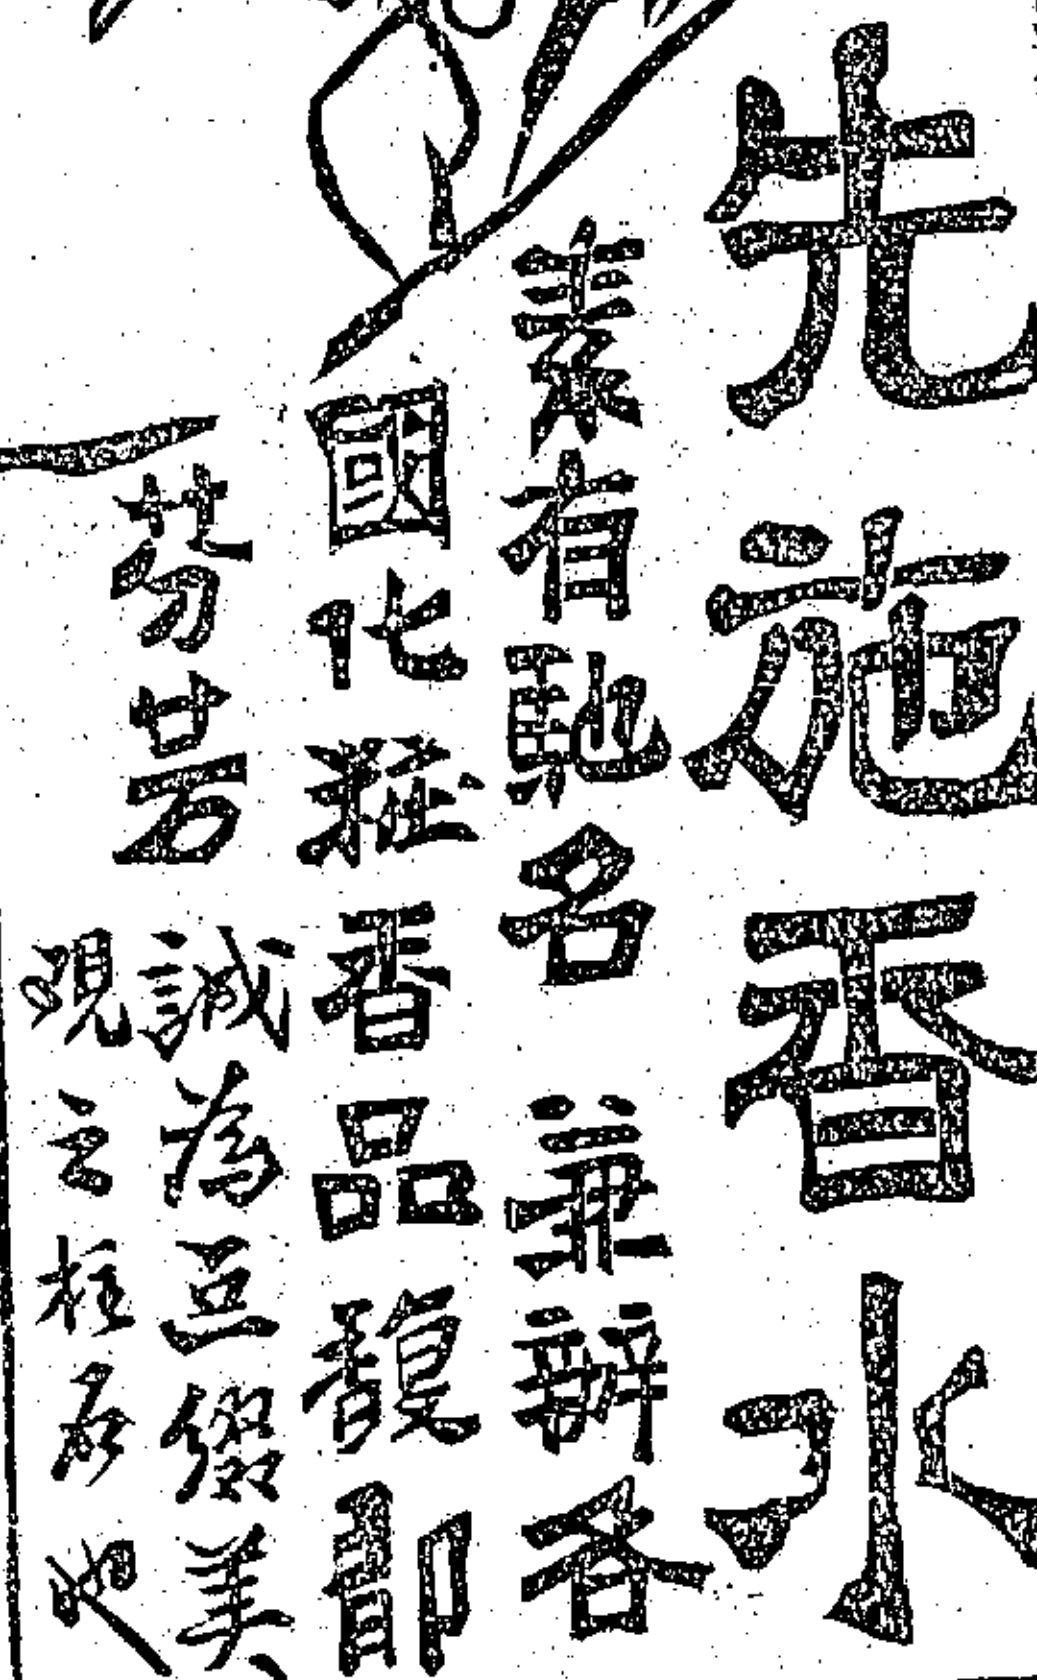 先施香水
素有馳名 兼辦各
國化粧香品馥郁
芬芳 誠為綴美
觀之也